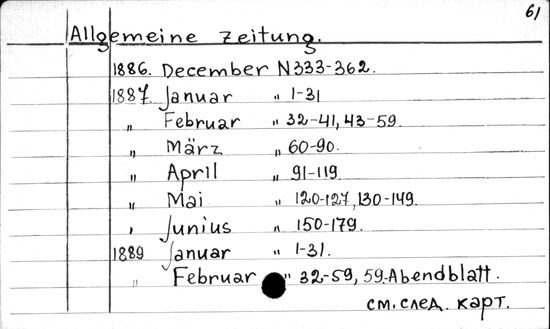 61
Allgemeine Zeitung.
1886. December N333-362.
1887. Januar „ 1-31
„ Februar „ 32-41, 43-59.
„ März „ 60-90.
„ April „ 91-119.
„ Mai „ 120-127, 130-149.
„ Junius „ 150-179.
1889 Januar „ 1-31.
„ Februar „ 32-59, 59-Abendblatt.
см. след. карт.